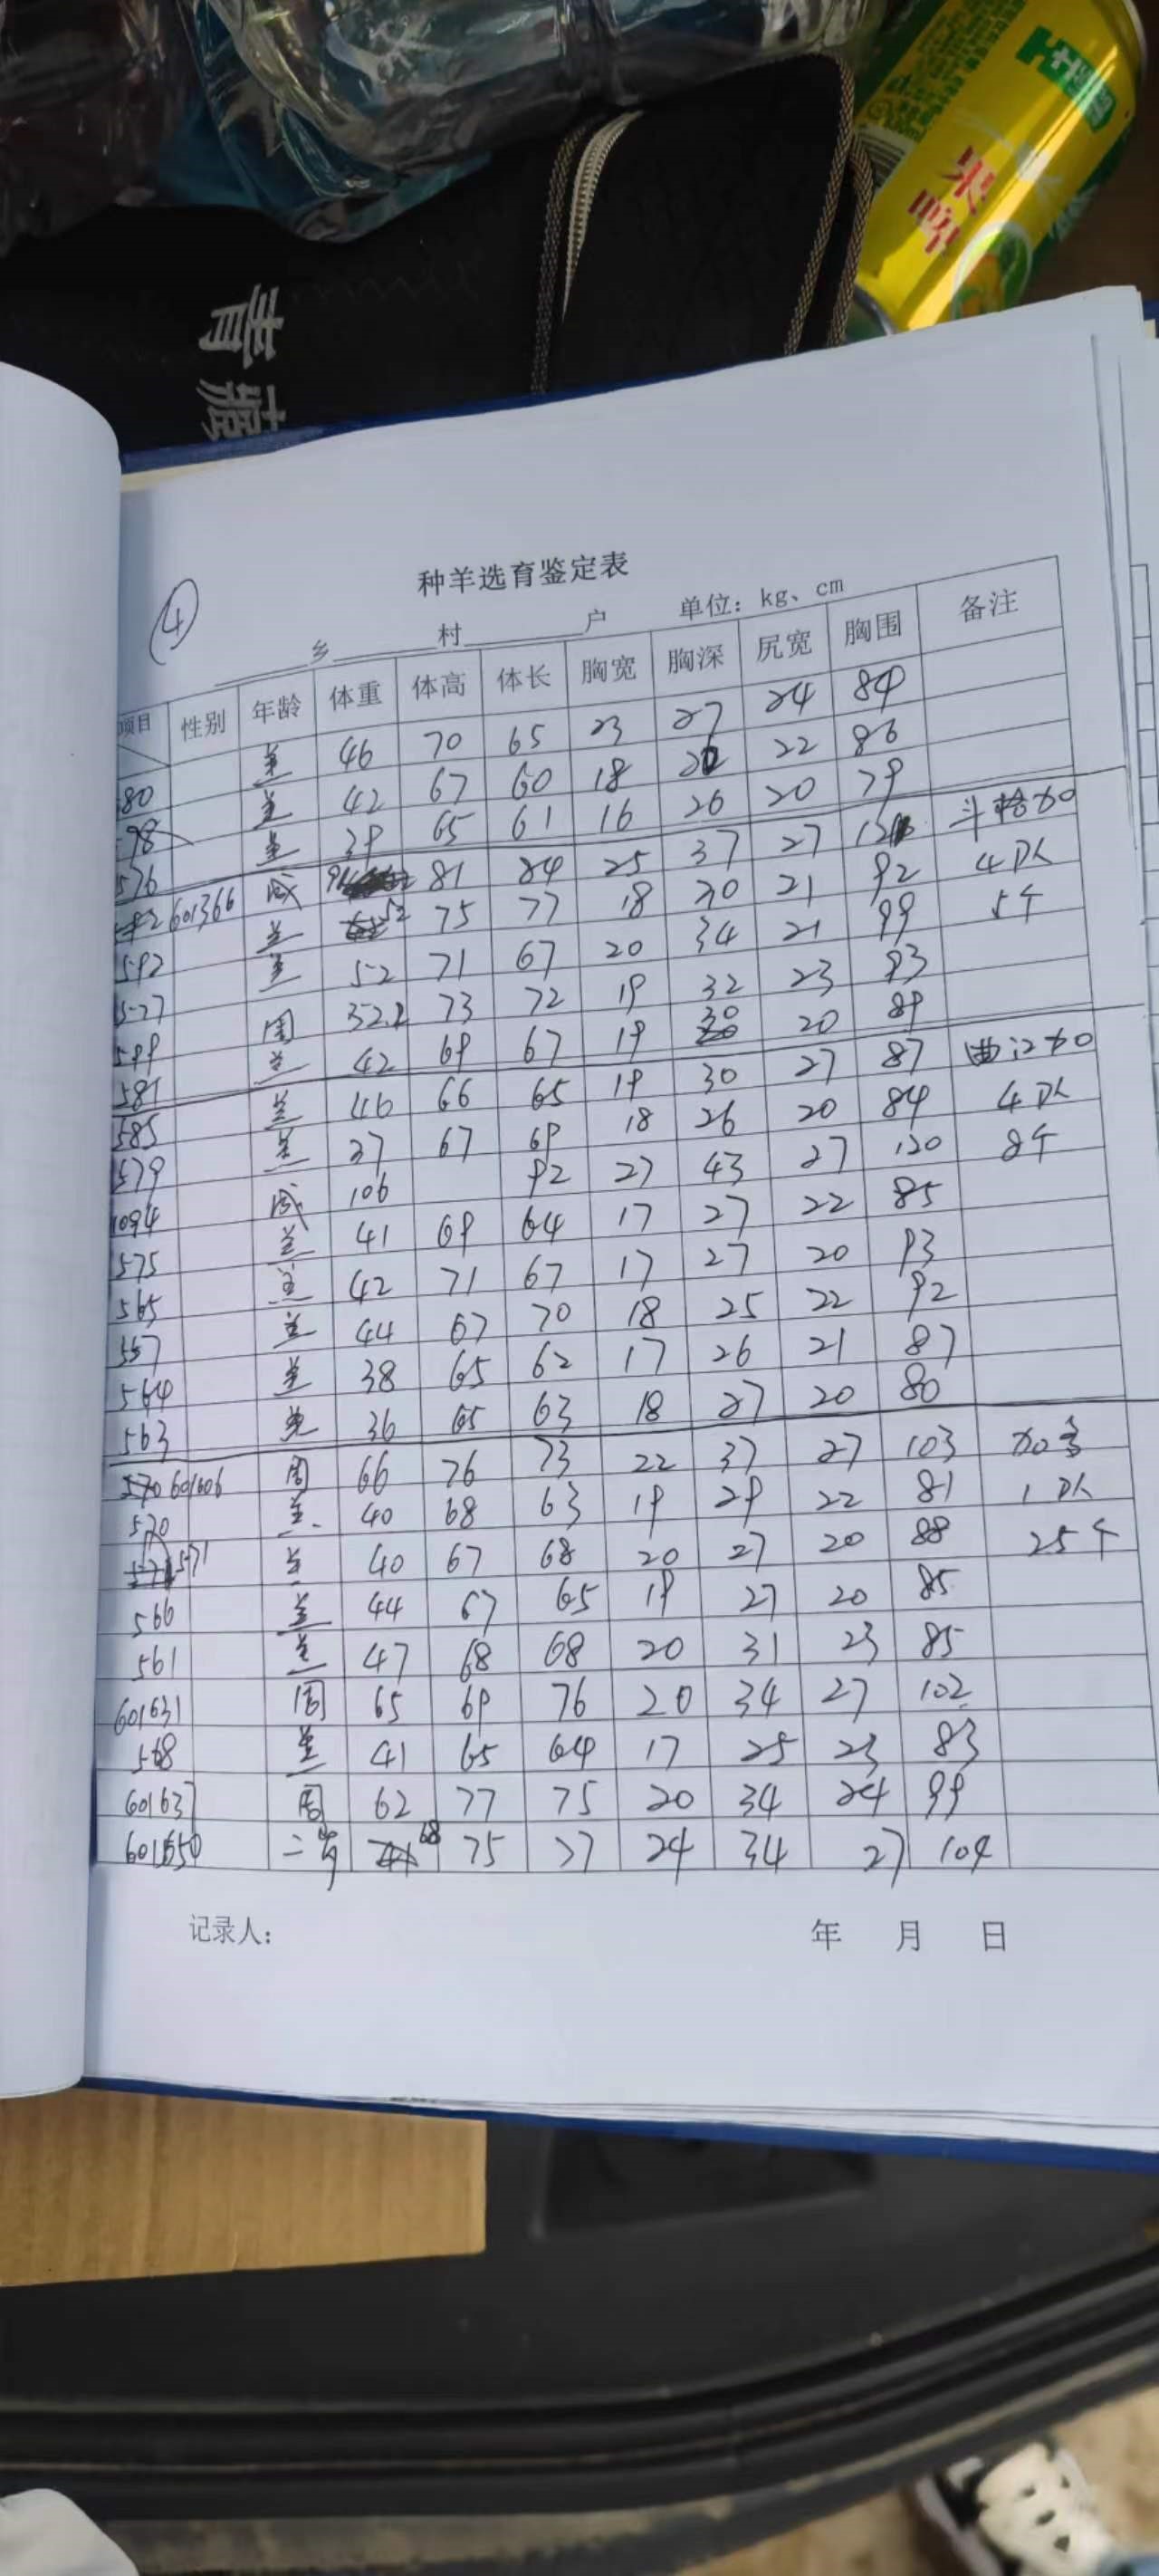 果啤
青藏
④
种羊选育鉴定表
乡 村 户 单位：kg、cm
项目 性别 年龄 体重 体高 体长 胸宽 胸深 尻宽 胸围 备注
80 羊 46 70 65 23 27 24 84
98 羊 42 67 60 18 22 86
576 羊 39 65 61 16 26 20 79
601366 成 81 84 25 37 27
592 羊 52 75 77 18 30 21 92 4队
577 羊 52 71 67 20 34 21 99 5个
599 周 32.2 73 72 19 32 23 93
581 羊 42 69 67 19 30 20 89
585 羊 46 66 65 19 30 27 87
579 羊 37 67 69 18 26 20 84 4队
1094 成 106 92 27 43 27 120 8个
575 羊 41 69 64 17 27 22 85
565 羊 42 71 67 17 27 20 93
557 羊 44 67 70 18 25 22 92
564 羊 38 65 62 17 26 21 87
563 羊 36 65 63 18 27 20 80
601606 周 66 76 73 22 37 27 103
570 羊 40 68 63 19 29 22 81 1队
571 羊 40 67 68 20 27 20 88 25个
566 羊 44 67 65 19 27 20 85
561 羊 47 68 68 20 31 23 85
601631 周 65 69 76 20 34 27 102
568 羊 41 65 64 17 25 23 83
601637 周 62 77 75 20 34 24 99
601650 二岁 68 75 77 24 34 27 104
记录人： 年 月 日